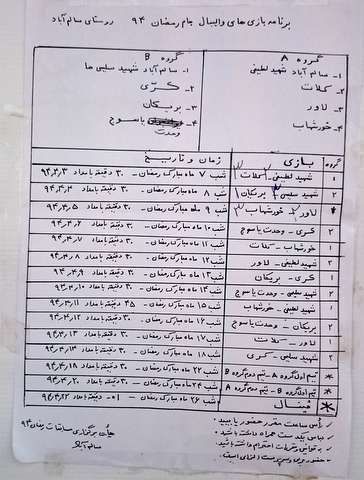 برنامه بازی های والیبال جام رمضان ۹۴ روستای سالم آباد
گروه A
۱- سالم آباد شهید لطیفی
۲- کلات
۳- لاور
۴- خورشهاب
گروه B
۱- سالم آباد شهید سلیمی ها
۲- کری
۳- بریکان
۴- یاسوج
وحدت
گروه بازی زمان و تاریخ
۱ شهید لطیفی - کلات شب ۷ ماه مبارک رمضان - ۳۰ دقیقه بامداد ۹۴,۴,۳
۲ شهید سلیمی - بریکان شب ۸ ماه مبارک رمضان - ۳۰ دقیقه بامداد ۹۴,۴,۴
لاور - خورشهاب شب ۹ ماه مبارک رمضان - ۳۰ دقیقه بامداد ۹۴,۴,۵
۲ کری - وحدت یاسوج شب ۱۰ ماه مبارک رمضان - ۳۰ دقیقه بامداد ۹۴,۴,۶
۱ خورشهاب - کلات شب ۱۱ ماه مبارک رمضان - ۳۰ دقیقه بامداد ۹۴,۴,۷
شهید لطیفی - لاور شب ۱۲ ماه مبارک رمضان - ۳۰ دقیقه بامداد ۹۴,۴,۸
کری - بریکان شب ۱۳ ماه مبارک رمضان - ۳۰ دقیقه بامداد ۹۴,۴,۹
۲ شهید سلیمی - وحدت یاسوج شب ۱۴ ماه مبارک رمضان - ۳۰ دقیقه بامداد ۹۴,۴,۱۰
۱ شهید لطیفی - خورشهاب شب ۱۵ ماه مبارک رمضان - ۴۵ دقیقه بامداد ۹۴,۴,۱۱
۲ بریکان - وحدت یاسوج ماه مبارک رمضان - ۳۰ دقیقه بامداد ۹۴,۴,۱۲
۱ لاور - کلات شب ۱۷ ماه مبارک رمضان - ۳۰ دقیقه بامداد ۹۴,۴,۱۳
۲ شهید سلیمی - کری شب ۱۸ ماه مبارک رمضان - ۳۰ دقیقه بامداد ۹۴,۴,۱۴
* تیم اول گروه A - تیم دوم گروه B شب ۲۲ ماه مبارک رمضان - ۳۰ دقیقه بامداد ۹۴,۴,۱۸
* تیم اول گروه B - تیم دوم گروه A شب ۲۴ ماه مبارک رمضان - ۳۰ دقیقه بامداد ۹۴,۴,۲۰
* فینال شب ۲۶ ماه مبارک رمضان - دقیقه بامداد ۹۴,۴,۲۲
✓ رأس ساعت مقرر حضور یابید.
✓ لباس یکدست همراه داشته باشید.
✓ به قوانین و مقررات احترام داشته باشید.
هیأت برگزاری مسابقات رمضان ۹۴
سالم آباد